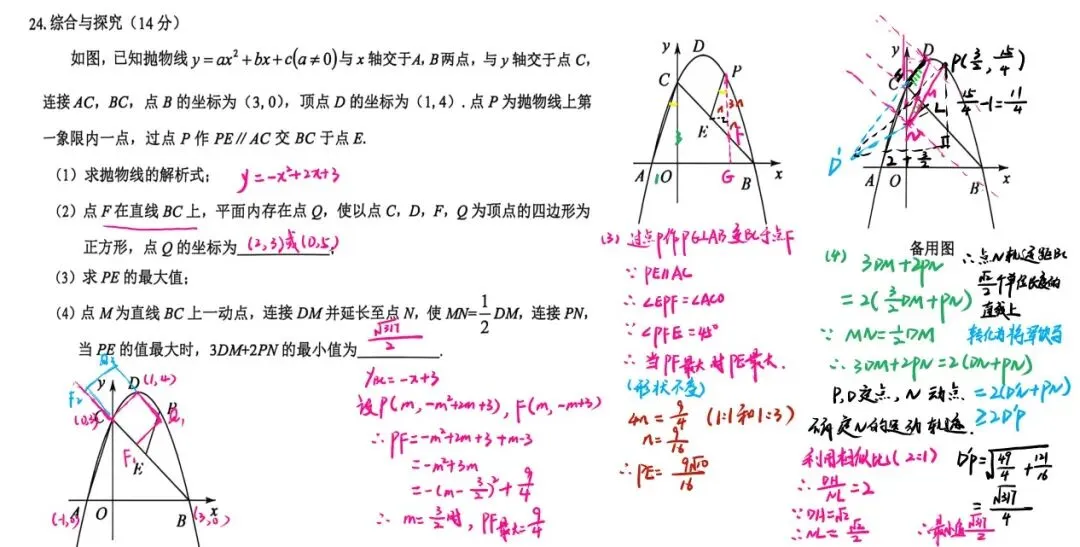 24.综合与探究（14 分）
如图，已知抛物线 y = ax² + bx + c(a ≠ 0) 与 x 轴交于 A, B 两点，与 y 轴交于点 C，
连接 AC，BC，点 B 的坐标为（3, 0），顶点 D 的坐标为（1, 4）. 点 P 为抛物线上第
一象限内一点，过点 P 作 PE∥AC 交 BC 于点 E.
（1）求抛物线的解析式； y=-x²+2x+3
（2）点 F 在直线 BC 上，平面内存在点 Q，使以点 C，D，F，Q 为顶点的四边形为
正方形，点 Q 的坐标为 (2,3)或(0,5);
（3）求 PE 的最大值；
（4）点 M 为直线 BC 上一动点，连接 DM 并延长至点 N，使 MN=1/2 DM，连接 PN，
当 PE 的值最大时，3DM+2PN 的最小值为 √317/2 .
y_BC=-x+3
设P(m,-m²+2m+3), F(m,-m+3)
∴ PF=-m²+2m+3+m-3
=-m²+3m
=-(m-3/2)²+9/4
∴ m=3/2时, PF最大=9/4
y
D (1,4)
F₂
(0,3)
C
P
Q₁
F₁
E
(-1,0)
A
O
B
(3,0)
x
y
D
C
P
n
3n
E
F
3
A
1
O
G
B
x
(3) 过点P作PG⊥AB交BC于点F
∵ PE∥AC
∴ ∠EPF=∠ACO
∵ ∠PFE=45°
∴ 当PF最大时PE最大.
(形状不变)
4n=9/4 (1:1和1:3)
n=9/16
∴ PE=9√10/16
y
D
P(3/2, 15/4)
C
H
M
L
15/4-1=11/4
N
D'
2+3/2
A
O
B
x
备用图
(4) 3DM+2PN
=2(3/2DM+PN)
∵ MN=1/2DM
∴ 3DM+2PN=2(DN+PN)
=2(D'N+PN)
≥2D'P
∴点N轨迹距BC
√2/2个单位长度的
直线上
转化为将军饮马
P,D定点, N动点
确定N的运动轨迹.
利用相似比(2:1)
∴ DH/NL=2
∵ DH=√2
∴ NL=√2/2
D'P=√(49/4+121/16)
=√317/4
∴最小值√317/2